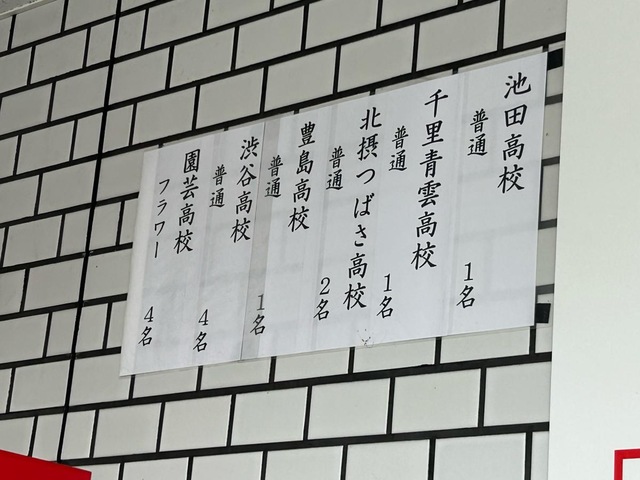 池田高校
普通 1名
千里青雲高校
普通 1名
北摂つばさ高校
普通 2名
豊島高校
普通 1名
渋谷高校
普通 4名
園芸高校
フラワー 4名